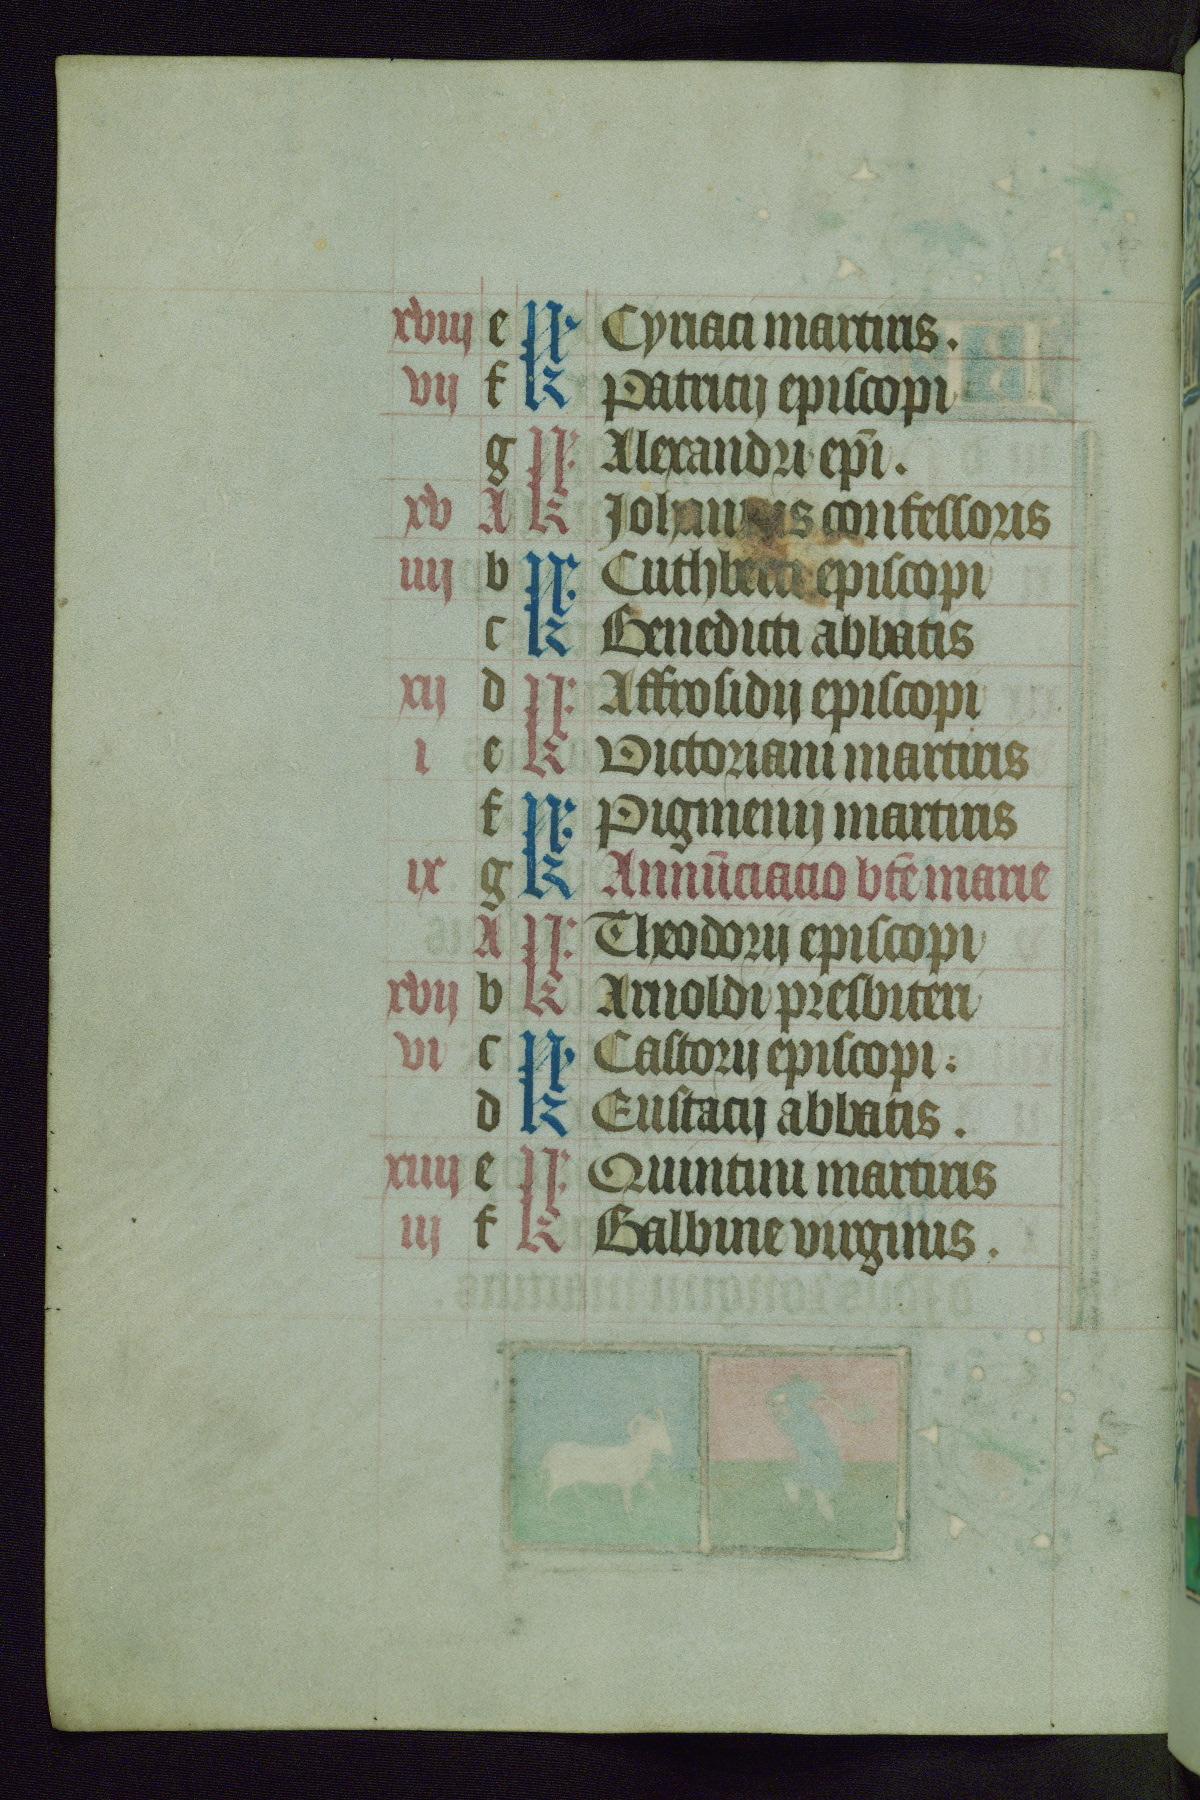 xviij e kl Cyriaci martiris.
vij f kl Patricij episcopi
g kl Alexandri epi.
xv A kl Johannis confessoris
iiij b kl Cuthberti episcopi
c kl Benedicti abbatis
xij d kl Affrosidij episcopi
i e kl Victoriani martiris
f kl Pigmenij martiris
ix g kl Annūciacio bte marie
A kl Theodorij episcopi
xvij b kl Arnoldi presbiteri
vi c kl Castorij episcopi.
d kl Eustacij abbatis.
xiiij e kl Quintini martiris
iij f kl Balbine virginis.